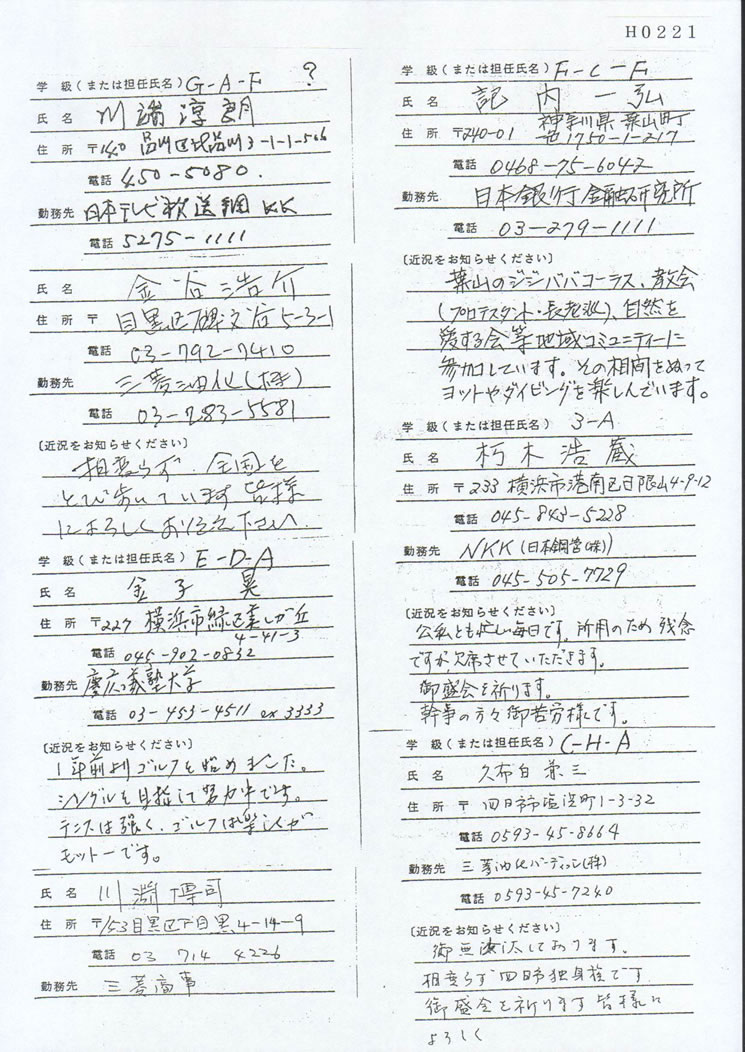 H0221
学 級(または担任氏名) G-A-F ?
氏 名 川端淳朗
住 所 〒140 品川区北品川3-1-1-506
電話 450-5080.
勤務先 日本テレビ放送網KK
電話 5275-1111
氏 名 金谷浩介
住 所 〒 目黒区碑文谷5-3-1
電話 03-792-7410
勤務先 三菱油化(株)
電話 03-283-5581
〔近況をお知らせください〕
相変らず、全国を
とび歩いています 皆様
によろしくお伝え下さい
学 級(または担任氏名) E-D-A
氏 名 金子 晃
住 所 〒227 横浜市緑区美しが丘
4-41-3
電話 045-902-0832
勤務先 慶応義塾大学
電話 03-453-4511 ex 3333
〔近況をお知らせください〕
1年前よりゴルフを始めました。
シングルを目指して努力中です。
テニスは強く、ゴルフは
モットーです。
氏 名 川淵博司
住 所 〒153目黒区下目黒4-14-9
電話 03 714 4226
勤務先 三菱商事
学 級(または担任氏名) E-C-F
氏 名 記内一弘
住 所 〒240-01 神奈川県葉山町
1750-1-217
電話 0468-75-6042
勤務先 日本銀行金融研究所
電話 03-279-1111
〔近況をお知らせください〕
葉山のジジババコーラス、教会
(プロテスタント・長老派)、自然を
愛する会等地域コミュニティーに
参加しています。その相間をぬって
ヨットやダイビングを楽しんでいます。
学 級(または担任氏名) 3-A
氏 名 朽木浩蔵
住 所 〒233 横浜市港南区日限山4-9-12
電話 045-843-5228
勤務先 NKK(日本鋼管(株))
電話 045-505-7729
〔近況をお知らせください〕
公私とも忙しい毎日です。所用のため残念
ですが、欠席させていただきます。
御盛会を祈ります。
幹事の方々御苦労様です。
学 級(または担任氏名) C-H-A
氏 名 久布白兼三
住 所 〒 四日市市塩浜町1-3-32
電話 0593-45-8664
勤務先 三菱油化バーディッシェ(株)
電話 0593-45-7240
〔近況をお知らせください〕
御無沙汰しております。
相変らず四日市独身族です
御盛会を祈ります 皆様に
よろしく